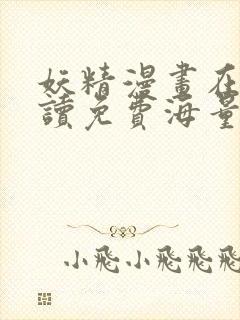 妖精漫畫在
讀免費海量
小飛小飛飛飛